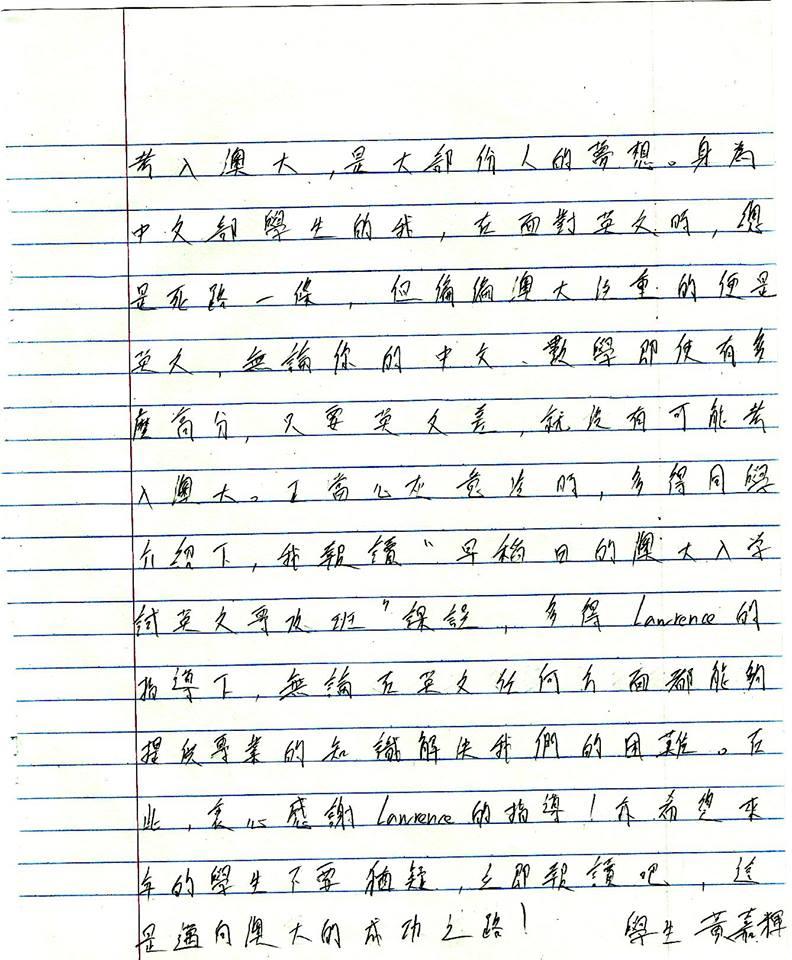 考入澳大,是大部份人的夢想。身為
中文部學生的我,在面對英文時,總
是死路一條,但偏偏澳大注重的便是
英文,無論你的中文、數學即使有多
麼高分,只要英文差,就沒有可能考
入澳大。正當心灰意冷時,多得同學
介紹下,我報讀“早稻田的澳大入学
試英文專攻班”課程,多得Lawrence的
指導下,無論在英文任何方面都能夠
提供專業的知識解決我們的困難。在
此,衷心感謝Lawrence的指導!亦希望來
年的學生不要猶疑,立即報讀吧,這
是邁向澳大的成功之路! 學生 黃嘉輝